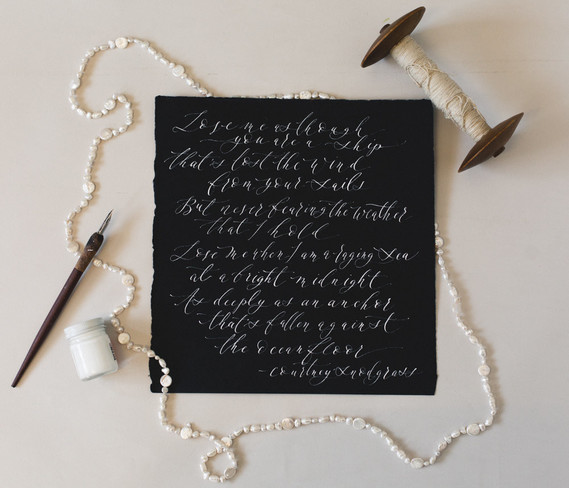 Lose me as though
you are a ship
that's lost the wind
from your sails
But never fearing the weather
that I hold
Lose me when I am a raging sea
at a bright midnight
As deeply as an anchor
that's fallen against
the ocean floor
- courtney snodgrass